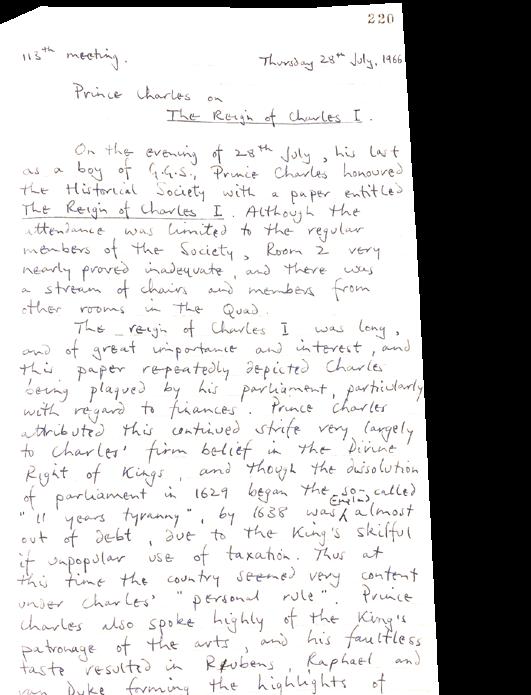 220
113th meeting. Thursday 28th July, 1966
Prince Charles on
The Reign of Charles I.
On the evening of 28th July, his last
as a boy of G.G.S., Prince Charles honoured
the Historical Society with a paper entitled
The Reign of Charles I. Although the
attendance was limited to the regular
members of the Society, Room 2 very
nearly proved inadequate, and there was
a stream of chairs and members from
other rooms in the Quad.
The reign of Charles I was long,
and of great importance and interest, and
this paper repeatedly depicted Charles
being plagued by his parliament, particularly
with regard to finances. Prince Charles
attributed this continued strife very largely
to Charles' firm belief in the Divine
Right of Kings, and though the dissolution
of parliament in 1629 began the so-called
"11 years tyranny", by 1638 England was almost
out of debt, due to the King's skilful
if unpopular use of taxation. Thus at
this time the country seemed very content
under Charles' "personal rule". Prince
Charles also spoke highly of the King's
patronage of the arts, and his faultless
taste resulted in Rubens, Raphael and
van Dyke forming the highlights of